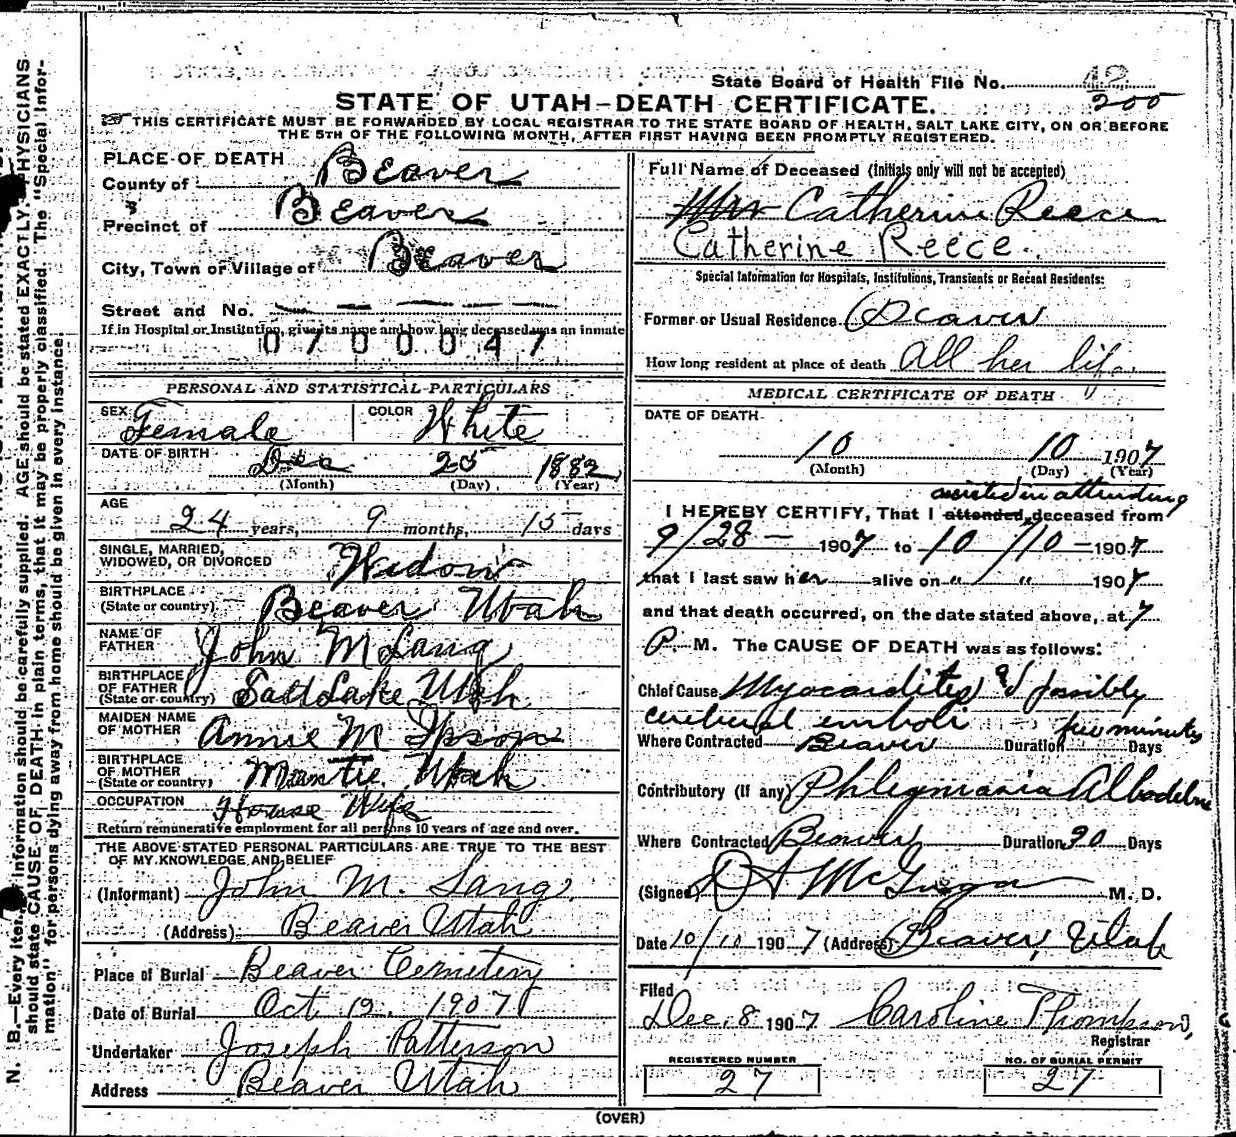 State Board of Health File No. 42
200
STATE OF UTAH-DEATH CERTIFICATE.
THIS CERTIFICATE MUST BE FORWARDED BY LOCAL REGISTRAR TO THE STATE BOARD OF HEALTH, SALT LAKE CITY, ON OR BEFORE
THE 5TH OF THE FOLLOWING MONTH, AFTER FIRST HAVING BEEN PROMPTLY REGISTERED.
PLACE OF DEATH
County of Beaver
Precinct of Beaver
City, Town or Village of Beaver
Street and No. — — — —
If in Hospital or Institution, give its name and how long deceased was an inmate
0700047
PERSONAL AND STATISTICAL PARTICULARS
SEX Female COLOR White
DATE OF BIRTH Dec 25 1882
(Month) (Day) (Year)
AGE 24 years, 9 months, 15 days
SINGLE, MARRIED,
WIDOWED, OR DIVORCED Widow
BIRTHPLACE
(State or country) Beaver Utah
NAME OF
FATHER John M Lang
BIRTHPLACE
OF FATHER
(State or country) Salt Lake Utah
MAIDEN NAME
OF MOTHER Annie M Ipson
BIRTHPLACE
OF MOTHER
(State or country) Mantie Utah
OCCUPATION House Wife
Return remunerative employment for all persons 10 years of age and over.
THE ABOVE STATED PERSONAL PARTICULARS ARE TRUE TO THE BEST
OF MY KNOWLEDGE AND BELIEF
(Informant) John M. Lang,
(Address) Beaver Utah
Place of Burial Beaver Cemetery
Date of Burial Oct 1907
Undertaker Joseph Patterson
Address Beaver Utah
Full Name of Deceased (initials only will not be accepted)
Mrs Catherine Reece
Catherine Reece.
Special Information for Hospitals, Institutions, Transients or Recent Residents:
Former or Usual Residence Beaver
How long resident at place of death all her life
MEDICAL CERTIFICATE OF DEATH
DATE OF DEATH
10 10 1907
(Month) (Day) (Year)
assisted in attending
I HEREBY CERTIFY, That I attended deceased from
9/28 – 1907 to 10/10 – 1907
that I last saw her alive on " / " 1907
and that death occurred, on the date stated above, at 7
P. M. The CAUSE OF DEATH was as follows:
Chief Cause Myocarditis & possibly
cerebral emboli few minutes
Where Contracted Beaver Duration Days
Contributory (If any) Phlegmasia Alba dolens
Where Contracted Beaver Duration 20 Days
(Signed) M. D.
Date 10/10 1907 (Address) Beaver, Utah
Filed
Dec. 8 1907 Caroline Thompson,
Registrar
REGISTERED NUMBER
27
NO. OF BURIAL PERMIT
27
(OVER)
N. B.—Every item of information should be carefully supplied. AGE should be stated EXACTLY. PHYSICIANS
should state CAUSE OF DEATH in plain terms, that it may be properly classified. The "Special Infor-
mation" for persons dying away from home should be given in every instance.